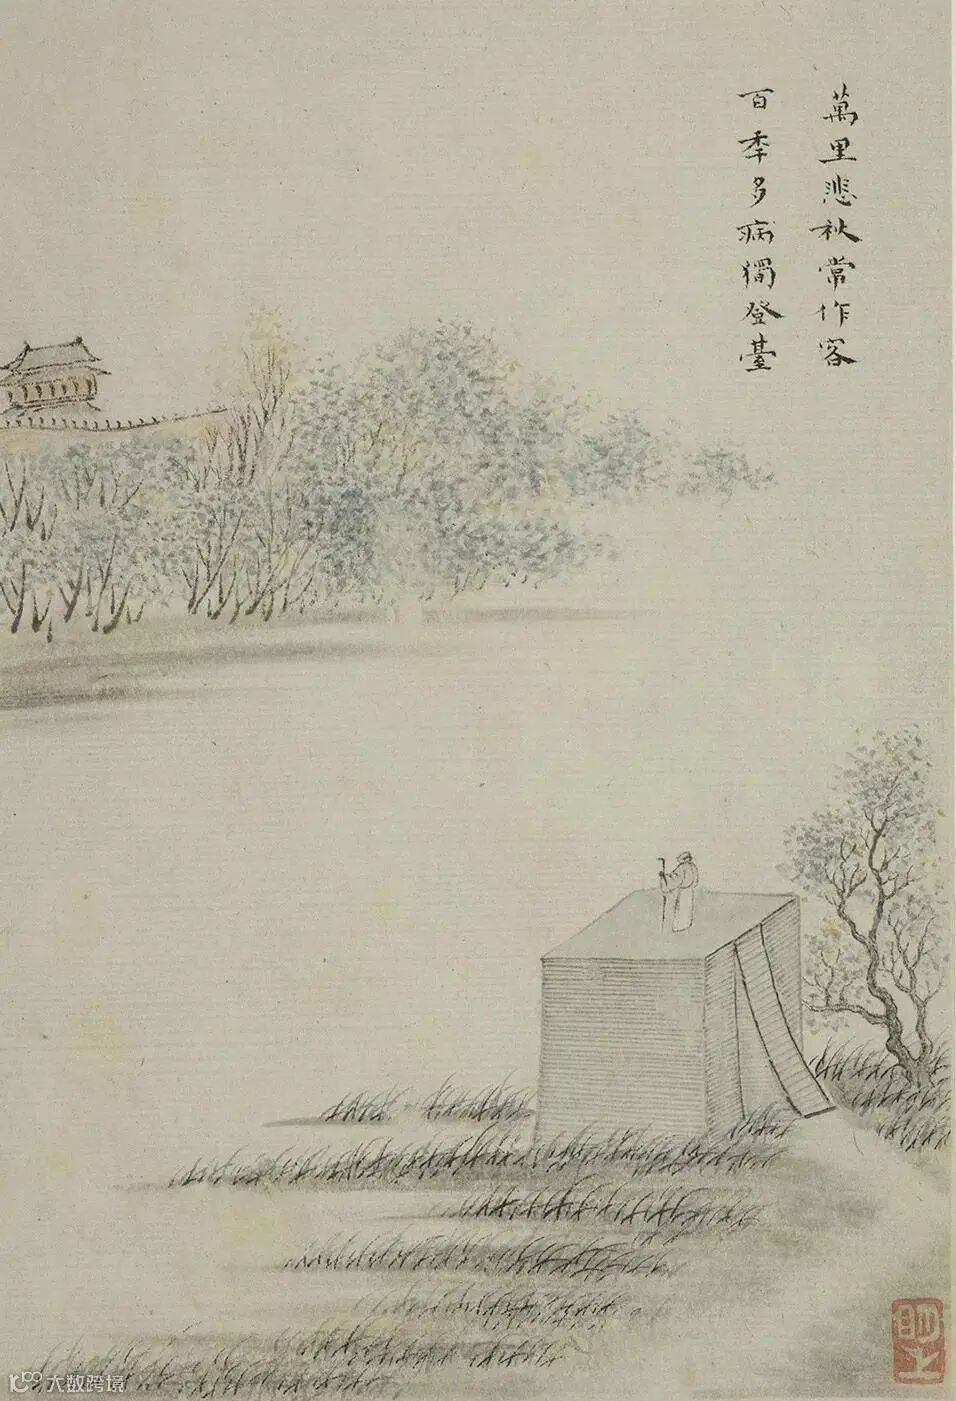 萬里悲秋常作客
百秊多病獨登臺
大数跨境